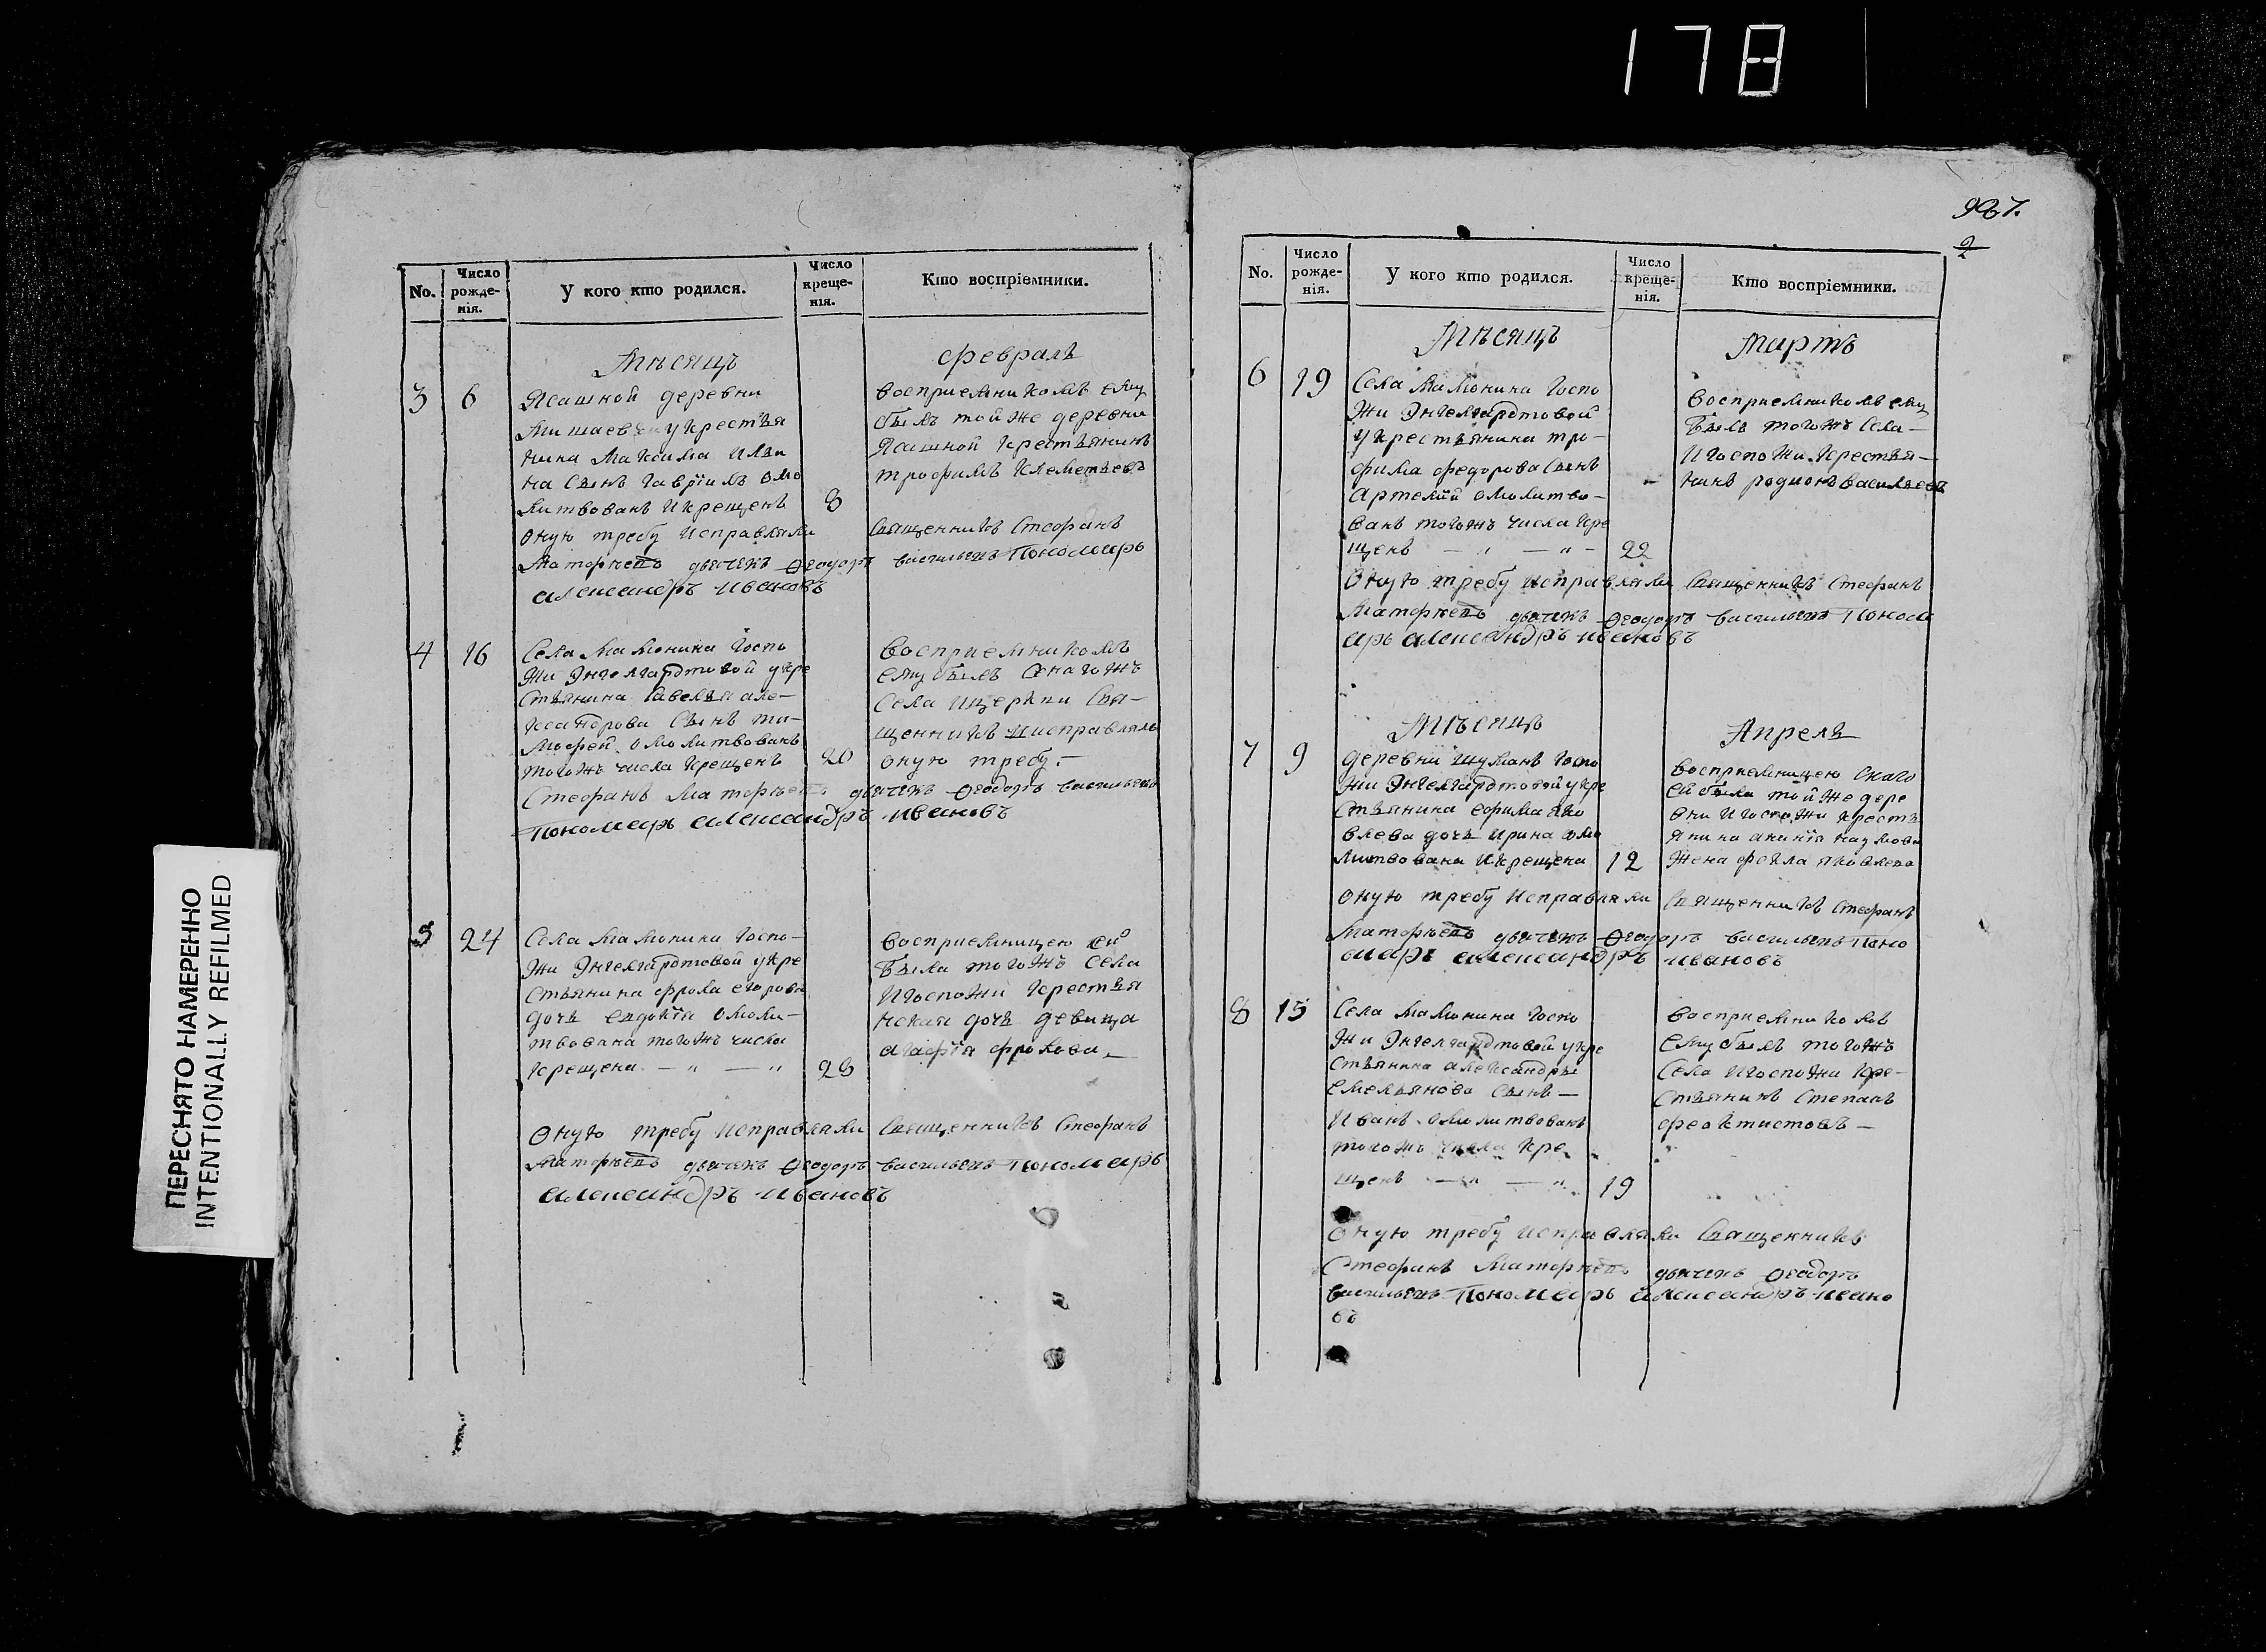 178
ПЕРЕСНЯТО НАМЕРЕННО
INTENTIONALLY REFILMED
No.
Число рожде-нія.
У кого кто родился.
Число креще-нія.
Кто воспріемники.
Мѣсяцъ Февраль
3 6
Ясашной деревни
у крестья
нина Максима Ильи
на сынъ Гавріилъ омо
литвованъ и крещенъ 8
Восприемникомъ ему
былъ той же деревни
Ясашной крестьянинъ
трофимъ Клементьевъ
оную требу исправляли Священникъ Стефанъ
дьячекъ Ѳеодоръ васильевъ Пономарь
александръ ивановъ
4 16
Села Мамонина Госпо
жи Энгелгардтовой у кре
стьянина Савелья але-
ксандрова сынъ ти-
мофей омолитвованъ
того жъ числа крещенъ 20
Восприемникомъ
ему былъ онаго жъ
Села и церкви Свя-
щенникъ и исправлялъ
оную требу.-
Стефанъ дьячекъ Ѳеодоръ васильевъ
Пономарь александръ ивановъ
5 24
Села Мамонина Госпо-
жи Энгелгардтовой у кре
стьянина фрола егорова
дочь евдокія омоли-
твована того жъ числа
крещена — „ — „ 28
Восприемницею ей
была того жъ села
и госпожи крестья
нская дочь девица
агафія фролова.—
Оную требу исправляли Священникъ Стефанъ
дьячекъ Ѳеодоръ васильевъ Пономарь
александръ ивановъ
987.
2
No.
Число рожде-нія.
У кого кто родился.
Число креще-нія.
Кто воспріемники.
Мѣсяцъ Мартъ
6 19
Села Мамонина Госпо
жи Энгелгардтовой
у крестьянина тро-
фима федорова сынъ
Артемій омолитво-
ванъ того жъ числа кре
щенъ — „ — „ — 22
Восприемникомъ ему
былъ того жъ Села—
и госпожи крестья—
нинъ родионъ васильевъ
Оную требу исправляли Священникъ Стефанъ
дьячекъ Ѳеодоръ васильевъ Поном
арь александръ ивановъ
Мѣсяцъ Апрель
7 9
деревни Шуманъ Госпо
жи Энгелгардтовой у кре
стьянина ефима яко
влева дочь Ирина омо
литвована и крещена 12
Восприемницею
ей была той же дере
вни и госпожи кресть
янина анания наумова
жена фекла яковлева
оную требу исправляли Священникъ Стефанъ
дьячекъ Ѳеодоръ васильевъ Поно
марь александръ ивановъ
8 15
Села Мамонина Госпо
жи Энгелгардтовой у кре
стьянина александры
емельянова сынъ—
Иванъ омолитвованъ
того жъ числа кре
щенъ — „ — „ 19
Восприемникомъ
ему былъ того жъ
Села и госпожи кре-
стьянинъ Степанъ
феоктистовъ—
Оную требу исправляли Священникъ
Стефанъ дьячекъ Ѳеодоръ
васильевъ Пономарь александръ ивано
въ